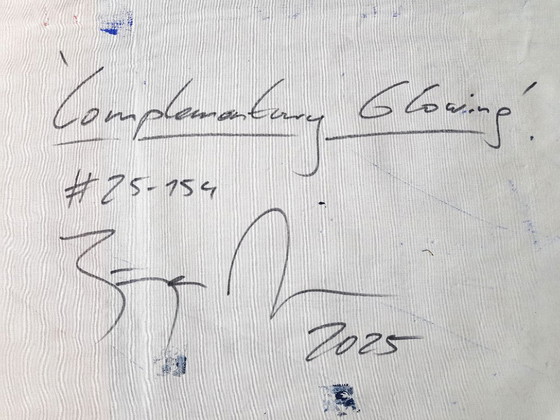 'Complementary Glowing'.
#25-154
2025